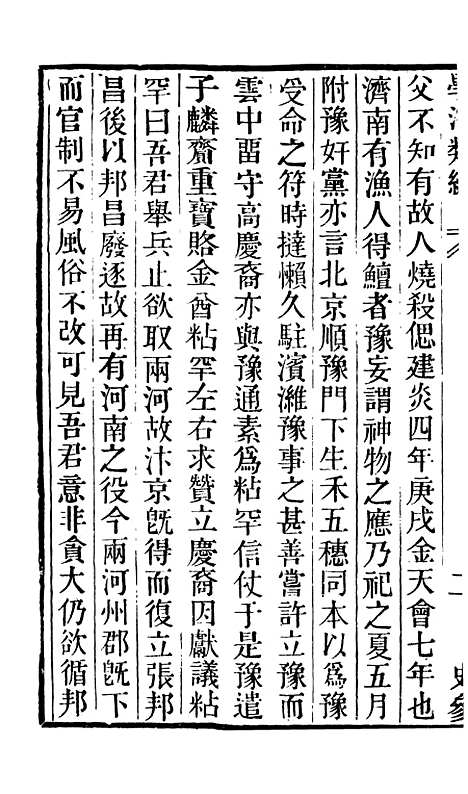 學海類編
二
史參
父不知有故人燒殺偲建炎四年庚戌金天會七年也
濟南有漁人得鱣者豫妄謂神物之應乃祀之夏五月
附豫奸黨亦言北京順豫門下生禾五穗同本以爲豫
受命之符時撻懶久駐濱濰豫事之甚善嘗許立豫而
雲中畱守高慶裔亦與豫通素爲粘罕信仗于是豫遣
子麟齎重寶賂金酋粘罕左右求贊立慶裔因獻議粘
罕曰吾君舉兵止欲取兩河故汴京旣得而復立張邦
昌後以邦昌廢逐故再有河南之役今兩河州郡旣下
而官制不易風俗不改可見吾君意非貪大仍欲循邦